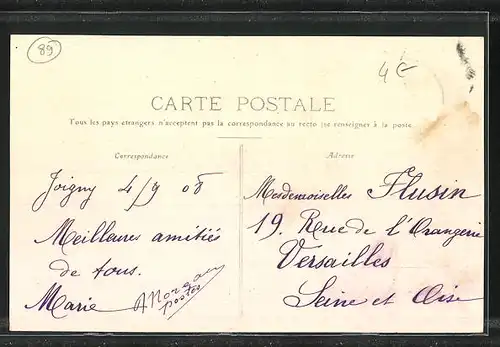 89
4€
CARTE POSTALE
Tous les pays étrangers n'acceptent pas la correspondance au recto (se renseigner à la poste
Correspondance
Adresse
Joigny 4/9 08
Meilleures amitiés
de tous.
Marie
postes
Mesdemoiselles Flusin
19. Rue de l'Orangerie
Versailles
Seine et Oise